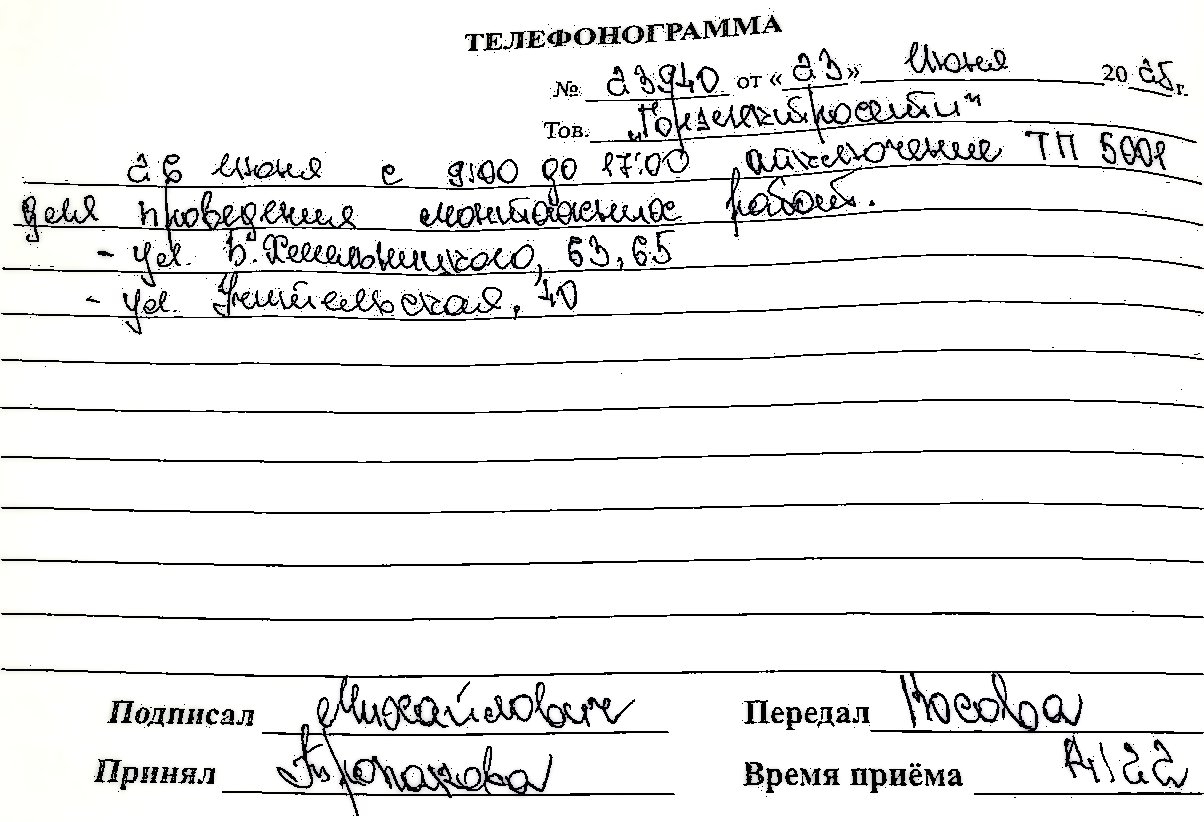 ТЕЛЕФОНОГРАММА
№ 23940 от «23» Июня 2025 г.
Тов. „Горэлектросети"
26 июня с 9:00 до 17:00 отключение ТП 5001
для проведения монтажных работ.
- ул. Б. Хмельницкого, 63, 65
- ул. Учительская, 10
Подписал Михайлович Передал Носова
Принял Время приёма